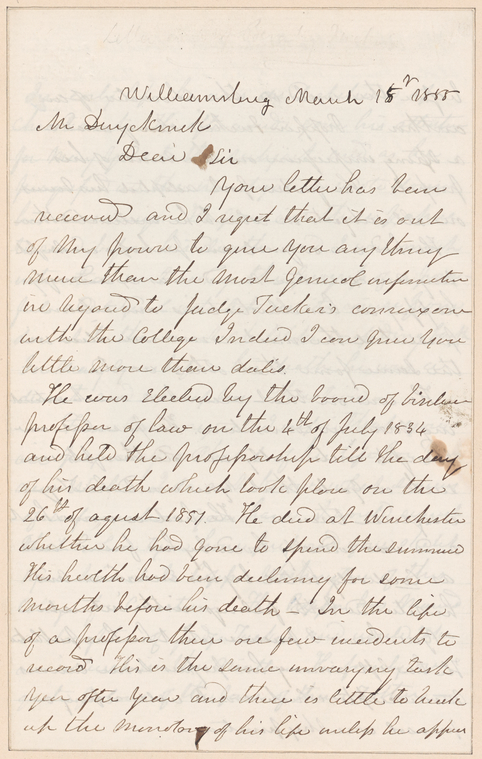 Williamsburg March 15r 1855
Mr Duyckinck
Dear Sir
Your letter has been
received and I regret that it is out
of my power to give you anything
more than the most general information
in regard to Judge Tucker's connexion
with the College Indeed I can give you
little more than dates.
He was elected by the board of visitors
professor of law on the 4th of July 1834
and held the professorship till the day
of his death which took place on the
26th of august 1851. He died at Winchester
whither he had gone to spend the summer
His health had been declining for some
months before his death – In the life
of a professor there are few incidents to
record His is the same unvarying task
year after year and there is little to break
up the monotony of his life unless he appear